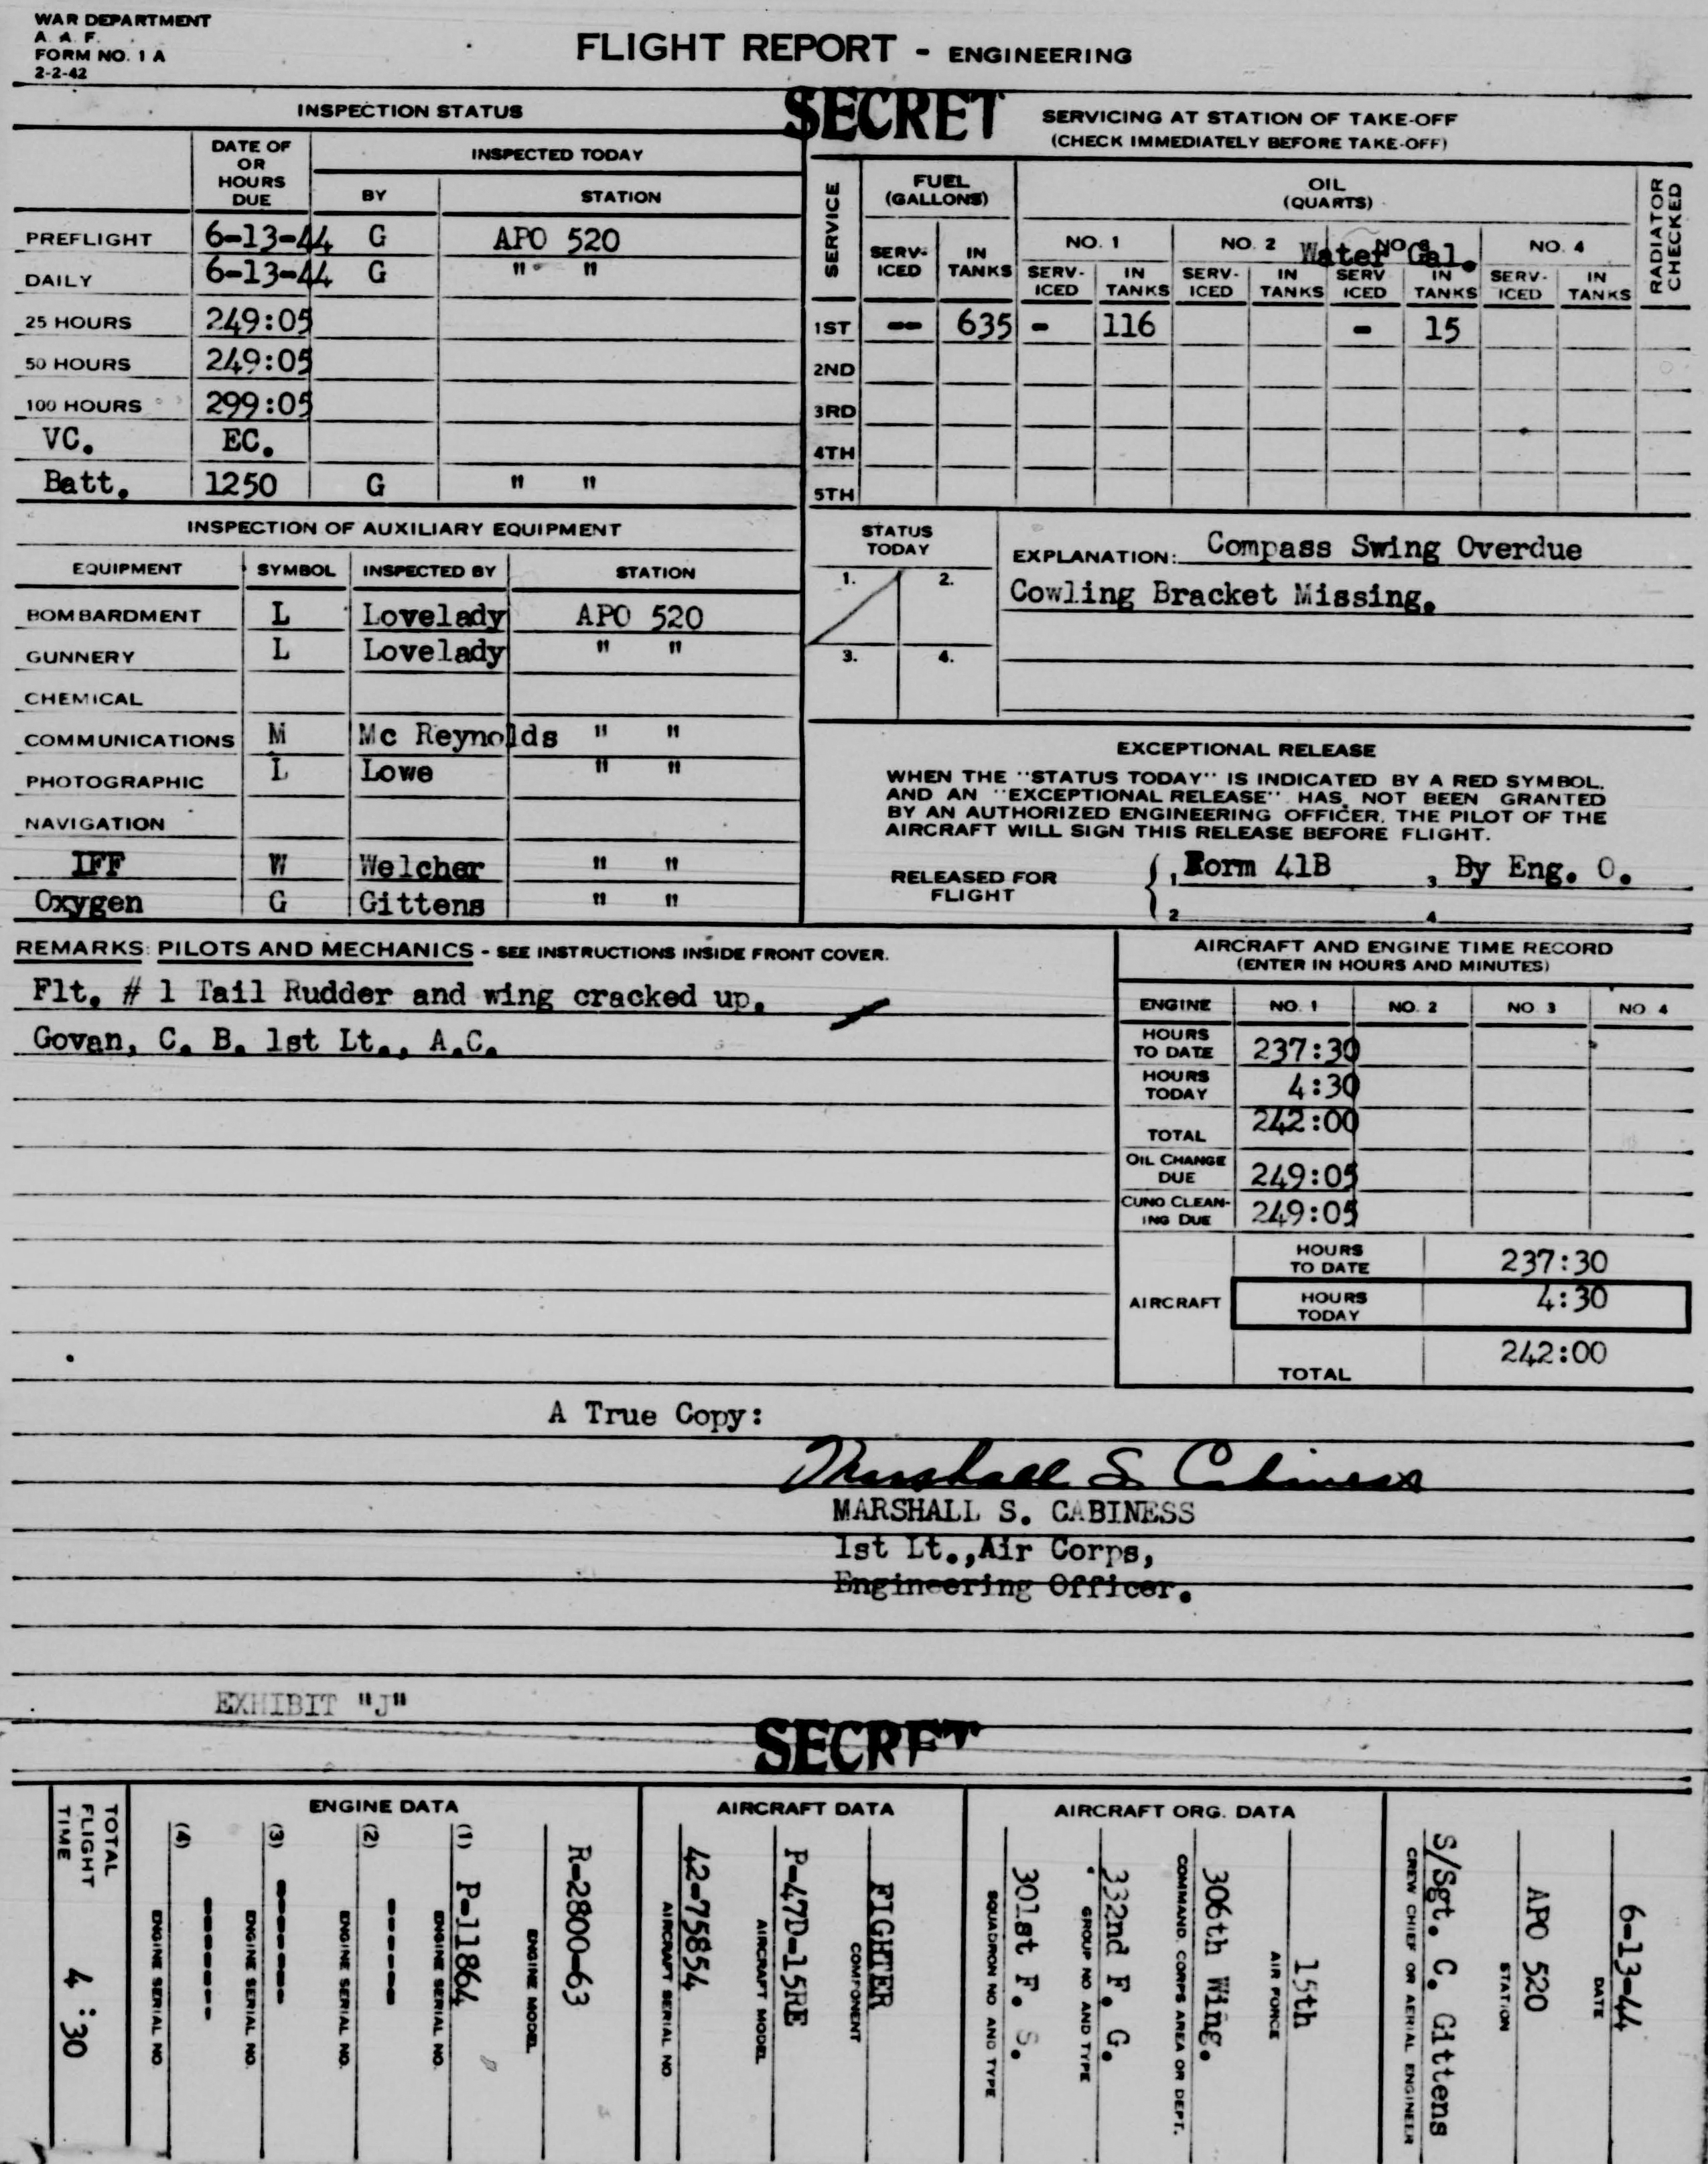 WAR DEPARTMENT
A. A. F.
FORM NO. 1 A
2-2-42
FLIGHT REPORT - ENGINEERING
SECRET
INSPECTION STATUS
DATE OF OR HOURS DUE
INSPECTED TODAY
BY STATION
PREFLIGHT 6-13-44 G APO 520
DAILY 6-13-44 G " "
25 HOURS 249:05
50 HOURS 249:05
100 HOURS 299:05
VC. EC.
Batt. 1250 G " "
SERVICING AT STATION OF TAKE-OFF
(CHECK IMMEDIATELY BEFORE TAKE-OFF)
SERVICE
FUEL (GALLONS)
OIL (QUARTS)
RADIATOR CHECKED
NO. 1 NO. 2 Water Gal. NO. 4
SERV-ICED IN TANKS SERV-ICED IN TANKS SERV-ICED IN TANKS SERV ICED IN TANKS SERV-ICED IN TANKS
1ST -- 635 - 116 - 15
2ND
3RD
4TH
5TH
INSPECTION OF AUXILIARY EQUIPMENT
EQUIPMENT SYMBOL INSPECTED BY STATION
BOMBARDMENT L Lovelady APO 520
GUNNERY L Lovelady " "
CHEMICAL
COMMUNICATIONS M Mc Reynolds " "
PHOTOGRAPHIC L Lowe " "
NAVIGATION
IFF W Welcher " "
Oxygen G Gittens " "
STATUS TODAY
1. 2.
3. 4.
EXPLANATION: Compass Swing Overdue
Cowling Bracket Missing.
EXCEPTIONAL RELEASE
WHEN THE "STATUS TODAY" IS INDICATED BY A RED SYMBOL,
AND AN "EXCEPTIONAL RELEASE" HAS NOT BEEN GRANTED
BY AN AUTHORIZED ENGINEERING OFFICER, THE PILOT OF THE
AIRCRAFT WILL SIGN THIS RELEASE BEFORE FLIGHT.
RELEASED FOR FLIGHT
1 Form 41B 3 By Eng. O.
2 4
REMARKS: PILOTS AND MECHANICS - SEE INSTRUCTIONS INSIDE FRONT COVER.
Flt. # 1 Tail Rudder and wing cracked up.
Govan, C. B. 1st Lt., A.C.
AIRCRAFT AND ENGINE TIME RECORD
(ENTER IN HOURS AND MINUTES)
ENGINE NO. 1 NO. 2 NO 3 NO 4
HOURS TO DATE 237:30
HOURS TODAY 4:30
TOTAL 242:00
OIL CHANGE DUE 249:05
CUNO CLEAN-ING DUE 249:05
AIRCRAFT
HOURS TO DATE 237:30
HOURS TODAY 4:30
TOTAL 242:00
A True Copy:
Marshall S Cabiness
MARSHALL S. CABINESS
1st Lt.,Air Corps,
Engineering Officer.
EXHIBIT "J"
SECRET
TOTAL FLIGHT TIME 4:30
ENGINE DATA
(4) ------
ENGINE SERIAL NO.
(3) ------
ENGINE SERIAL NO.
(2) -----
ENGINE SERIAL NO.
(1) P-11864
ENGINE SERIAL NO.
R-2800-63
ENGINE MODEL
AIRCRAFT DATA
42-75854
AIRCRAFT SERIAL NO
P-47D-15RE
AIRCRAFT MODEL
FIGHTER
COMPONENT
AIRCRAFT ORG. DATA
301st F. S.
SQUADRON NO AND TYPE
332nd F. G.
GROUP NO AND TYPE
306th Wing.
COMMAND, CORPS AREA OR DEPT.
15th
AIR FORCE
S/Sgt. C. Gittens
CREW CHIEF OR AERIAL ENGINEER
APO 520
STATION
6-13-44
DATE